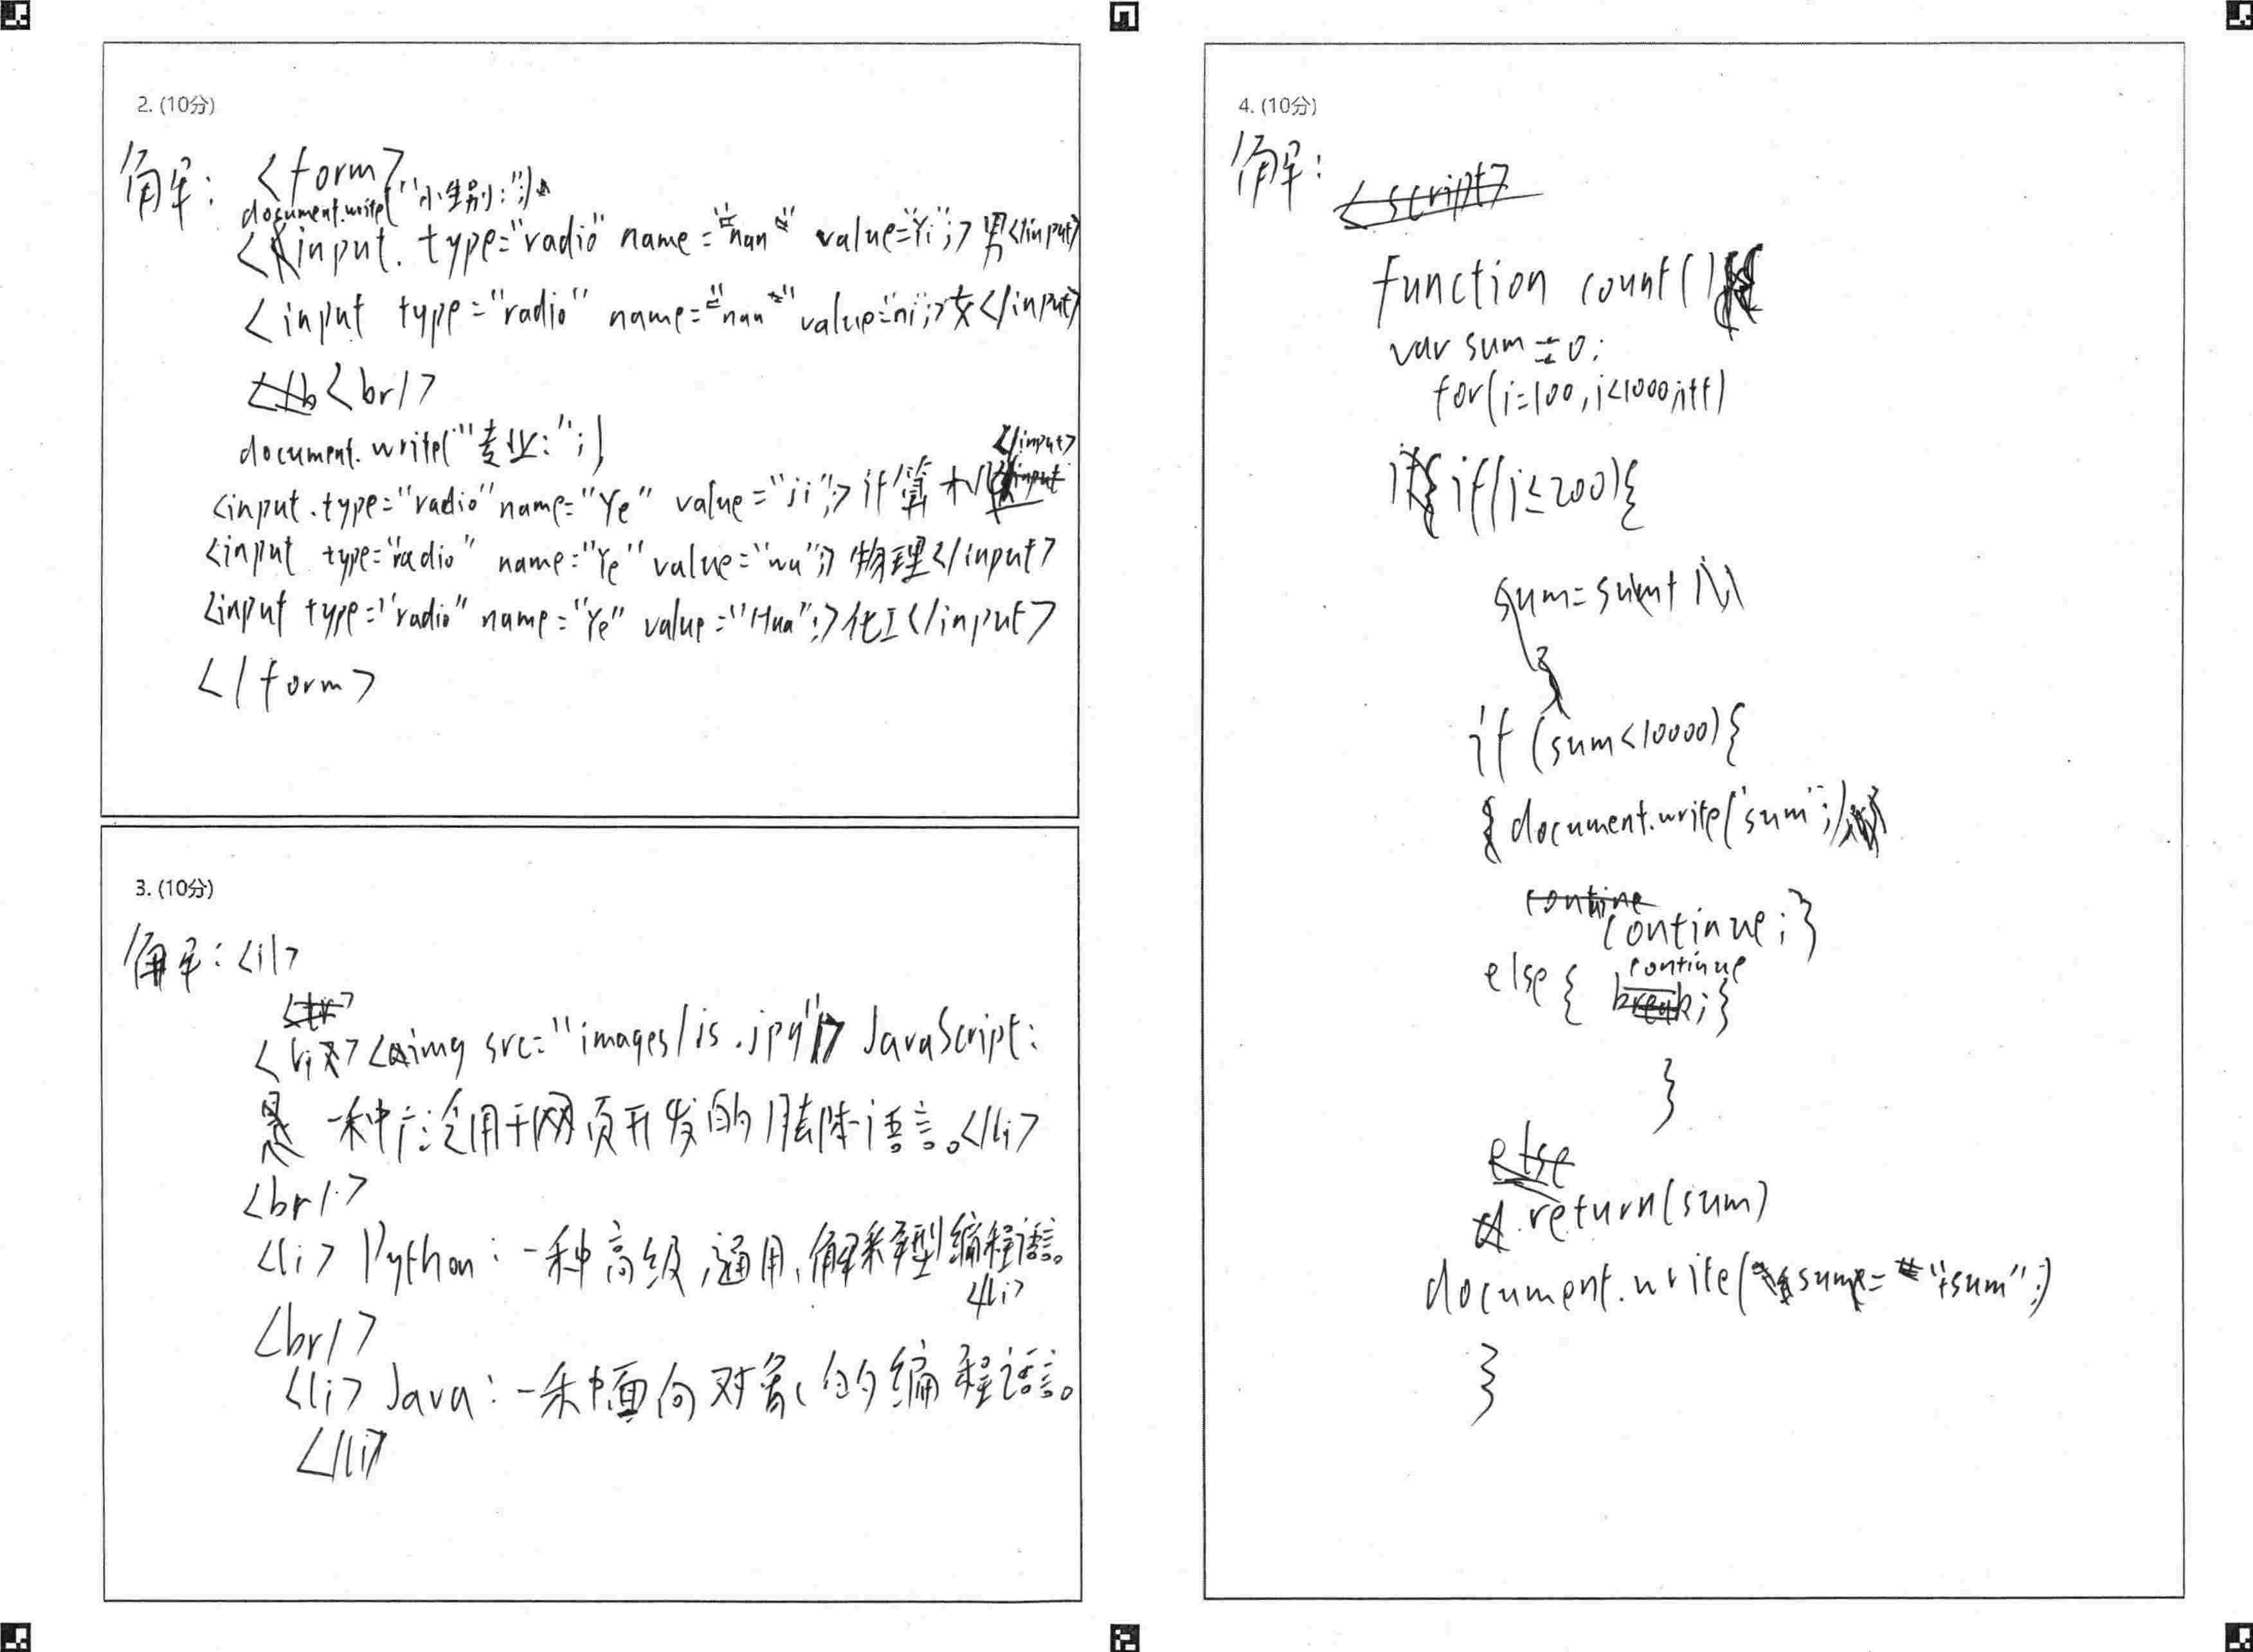 2. (10分)
解: <form>
document.write("性别:";)
<input. type="radio" name="nan" value="Yi";>男</input>
<input type="radio" name="nan" value="ni";>女</input>
<br/>
document.write("专业:";)
<input.type="radio" name="Ye" value="ji";>计算机</input>
<input type="radio" name="Ye" value="wu";>物理</input>
<input type="radio" name="Ye" value="Hua";>化工</input>
</form>
3. (10分)
解: <il>
<li><img src="images/js.jpg"/> JavaScript:
是一种广泛用于网页开发的脚本语言。</li>
<br/>
<li> Python: 一种高级,通用,解释型编程语言。
</li>
<br/>
<li> Java: 一种面向对象的编程语言。
</li>
4. (10分)
解:
<script>
function count()
var sum=0;
for(i=100,i<1000,i++)
if(i≤200){
sum=sum+i
}
if (sum<10000){
document.write("sum";)
continue;}
else { continue;}
}
else
return(sum)
document.write(sum="+sum";)
}